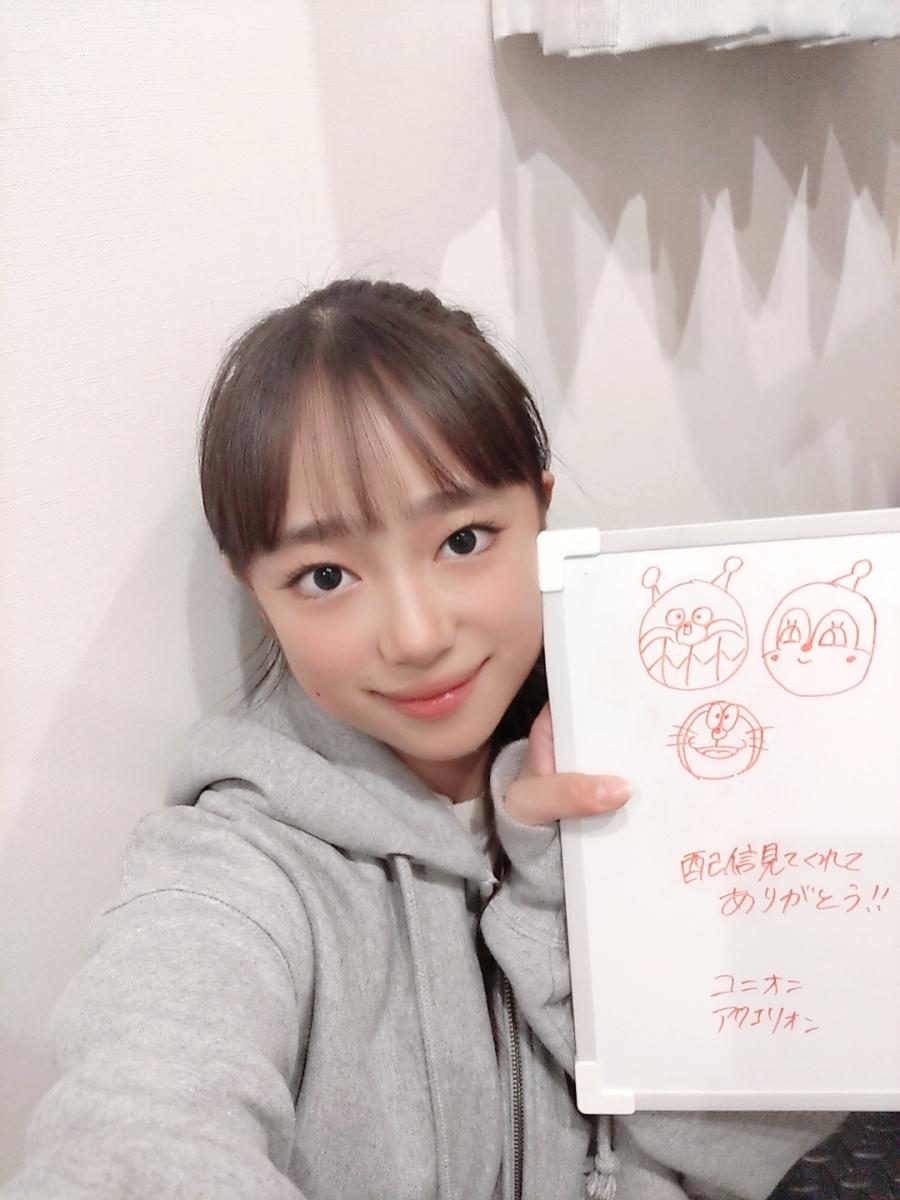 配信見てくれて
ありがとう!!
ユニオン
アクエリオン